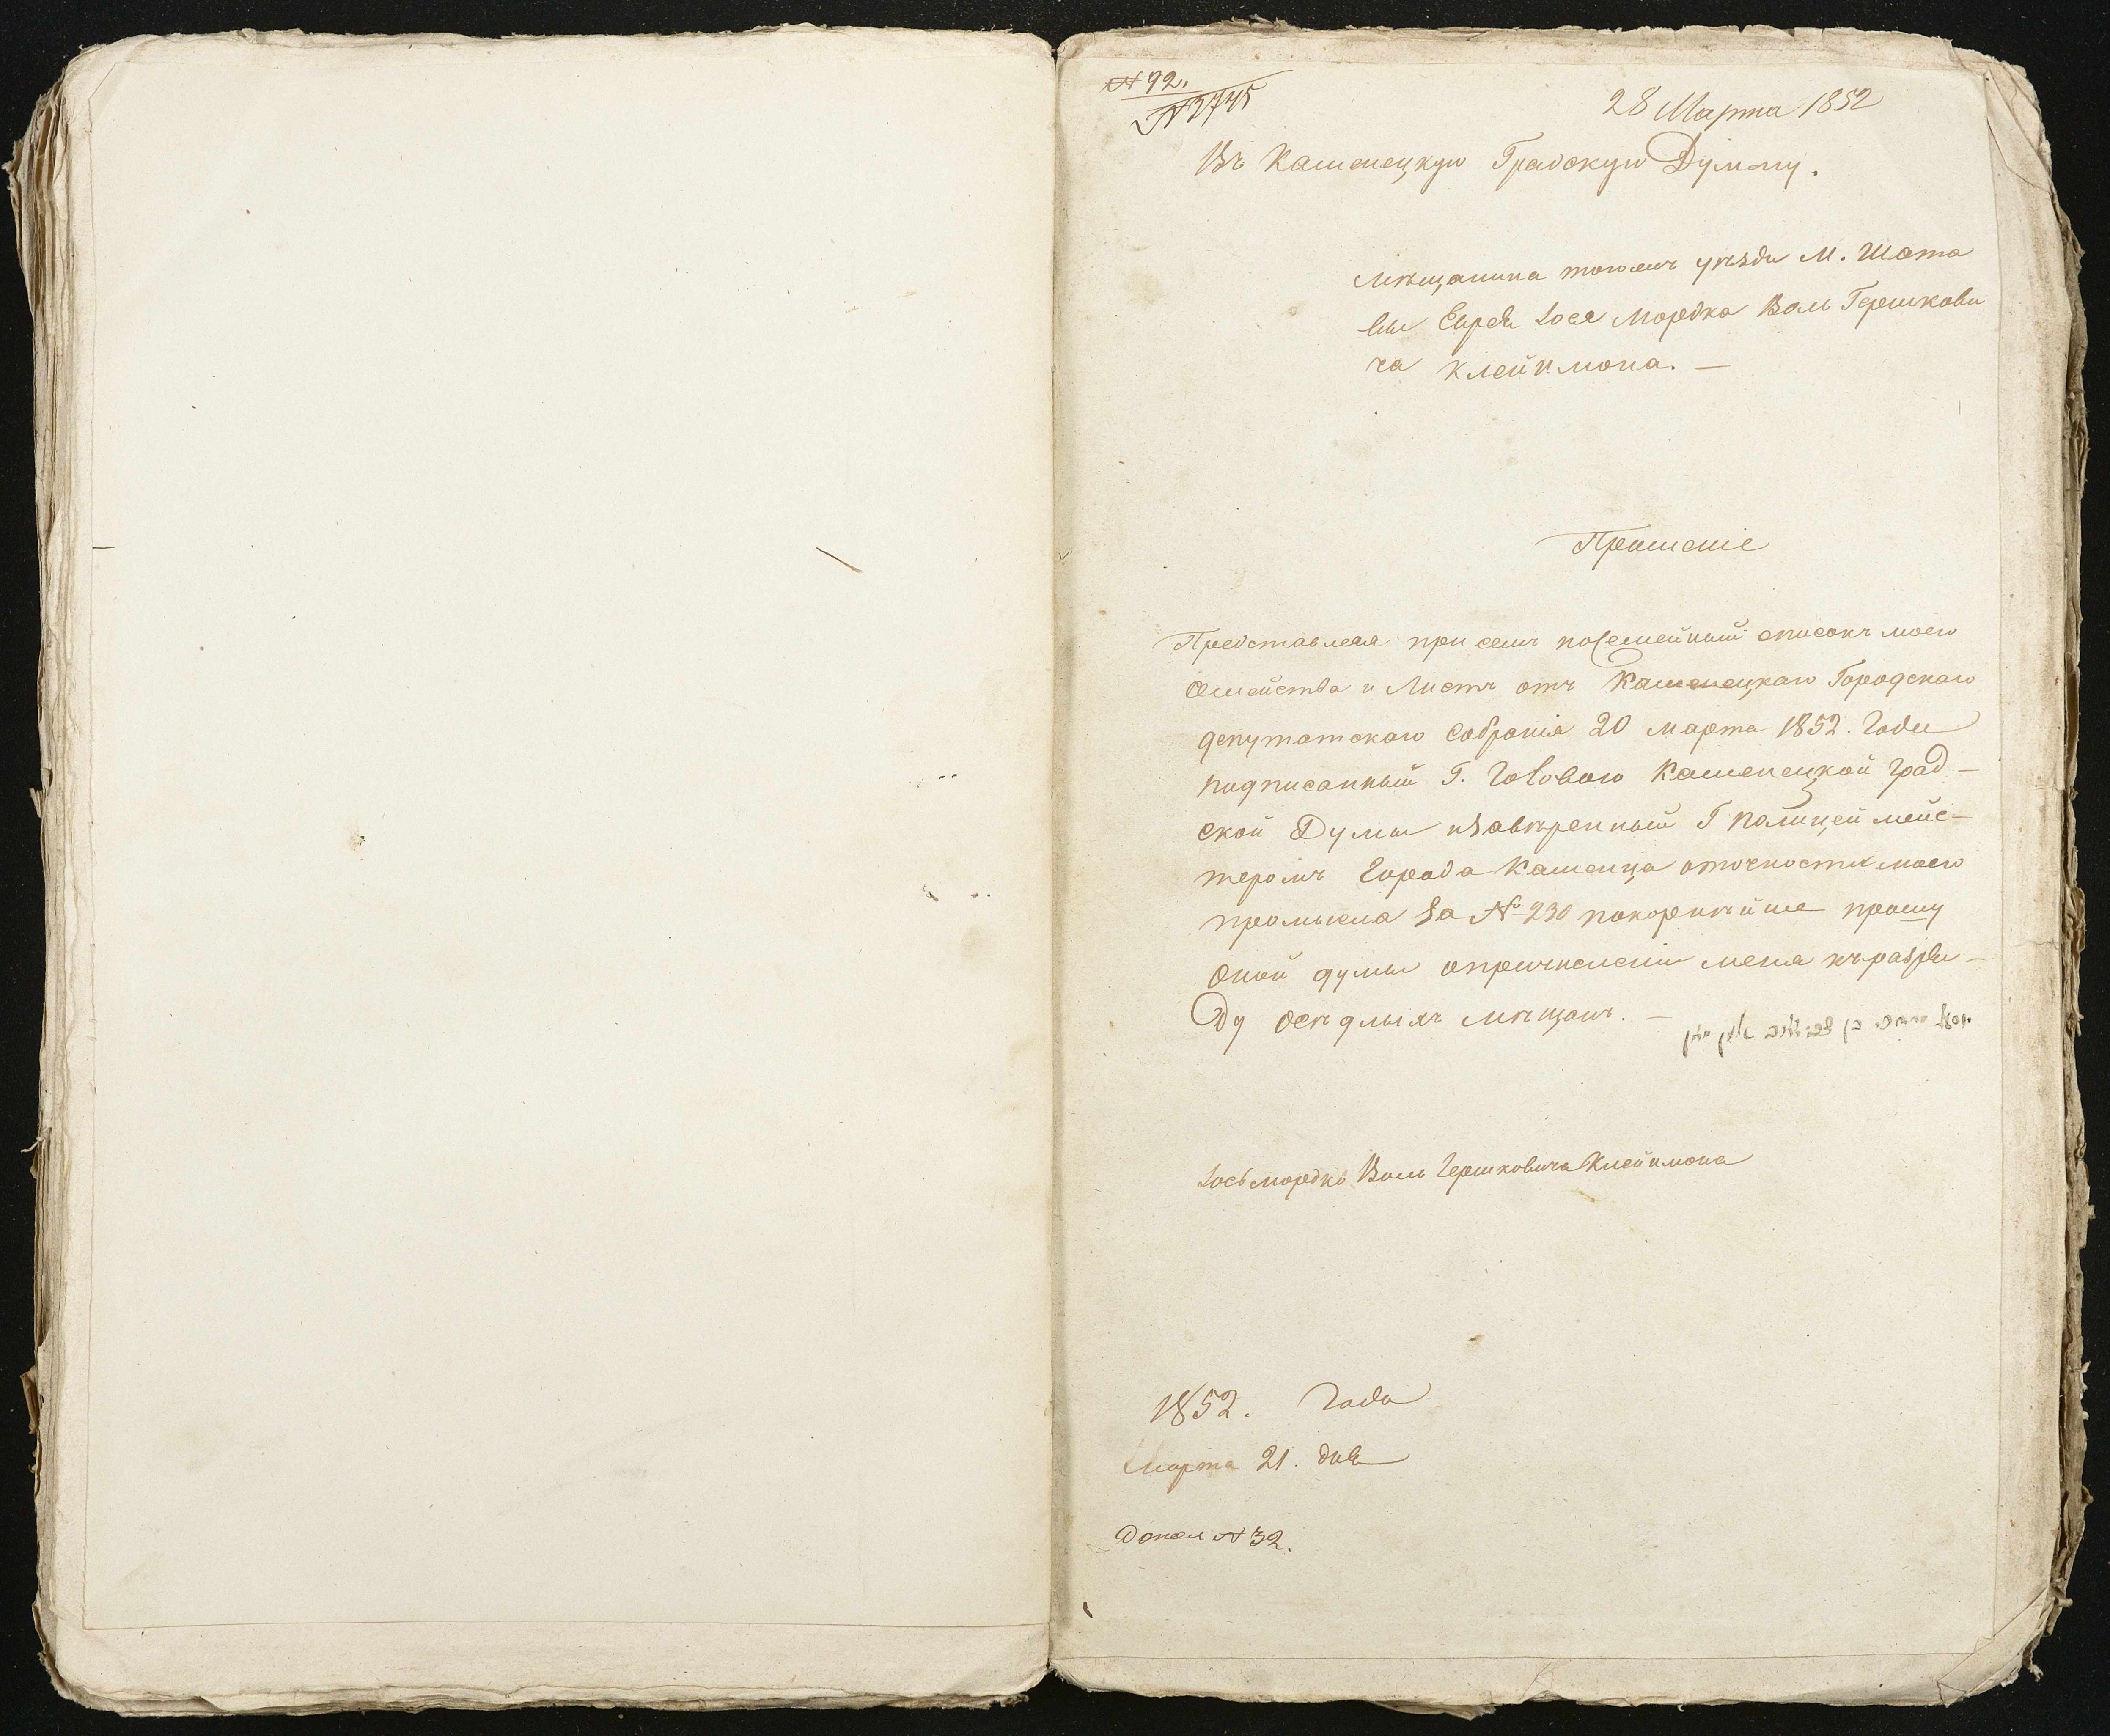 № 92.
№ 2745
28 Марта 1852
Въ Каменецкую Градскую Думу.
Мѣщанина тогожъ уѣзда М. Шата
вы Еврея Іося Мордка Воль Гершкови
ча Клейнмона. —
Прошеніе
Представляя при семъ посемейный списокъ моего
семейства и Листъ отъ Каменецкаго Городскаго
депутатскаго Собранія 20 марта 1852. Года
подписанный Г. Головою Каменецкой град-
ской Думы изавѣренный Г Полицеймейс-
теромъ Города Каменца оточности моего
промысла за № 230 покорнѣйше прошу
оной думы опричисленіи меня къразря-
ду осѣдлыхъ мѣщанъ. —
Іось мордко Воль Гершковича Клейнмона
1852. Года
Марта 21. дня
Докл № 32.